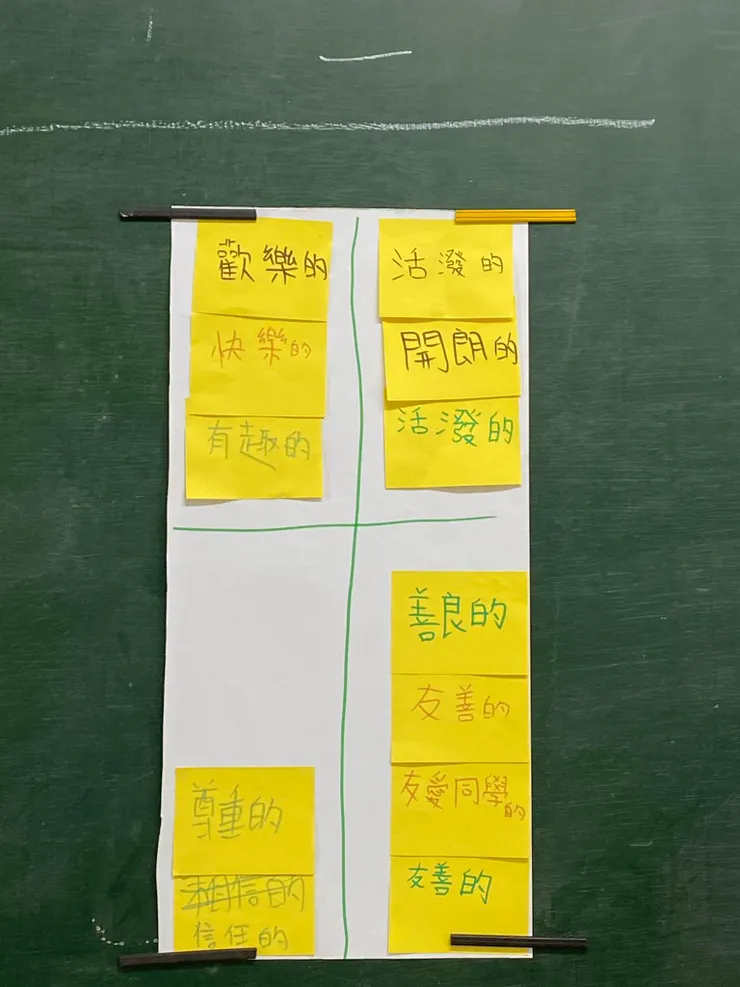 歡樂的
快樂的
有趣的
活潑的
開朗的
活潑的
尊重的
相信的
信任的
善良的
友善的
友愛同學的
友善的